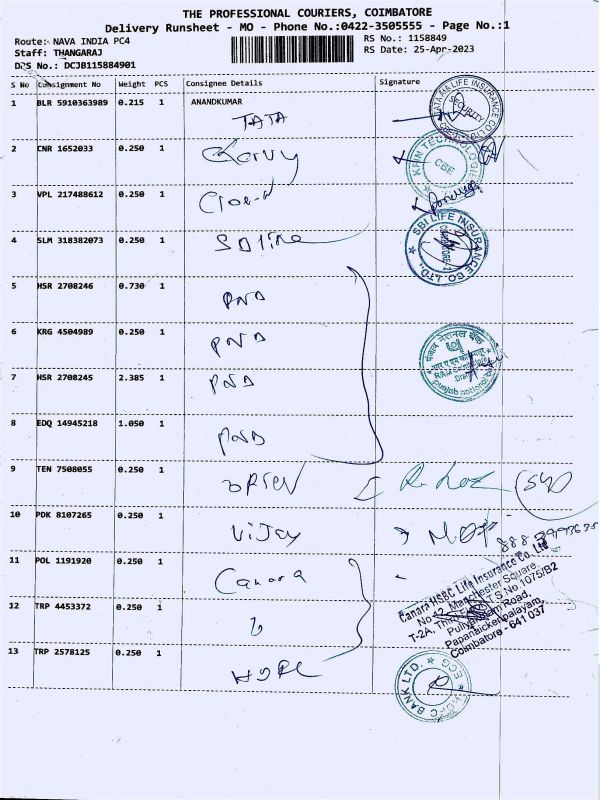 THE PROFESSIONAL COURIERS, COIMBATORE
Delivery Runsheet - MO - Phone No.:0422-3505555 - Page No.:1
Route: NAVA INDIA PC4
RS No.: 1158849
Staff: THANGARAJ
RS Date: 25-Apr-2023
DRS No.: DCJB115884901
S No Consignment No Weight PCS Consignee Details Signature
1 BLR 5910363989 0.215 1 ANANDKUMAR
TATA
TATA AIA LIFE INSURANCE CO
SECURITY
2 CNR 1652033 0.250 1
CBE
3 VPL 217488612 0.250 1
4 SLM 318382073 0.250 1
SBI LIFE INSURANCE CO. LTD.
5 HSR 2708246 0.730 1
PNB
6 KRG 4504989 0.250 1 PNB
पंजाब नैशनल बैंक
punjab national
7 HSR 2708245 2.385 1 PNB
8 EDQ 14945218 1.050 1
PNB
9 TEN 7508055 0.250 1
10 PDK 8107265 0.250 1
Vijay
11 POL 1191920 0.250 1
Canara
Canara HSBC Life Insurance Co. Ltd
No.12, Manchester Square,
T-2A, Third Floor, T S No 1075/B2
Puliyakulam Road,
Papanaickenpalayam,
Coimbatore - 641 037
12 TRP 4453372 0.250 1
13 TRP 2578125 0.250 1
HDFC
BANK LTD.